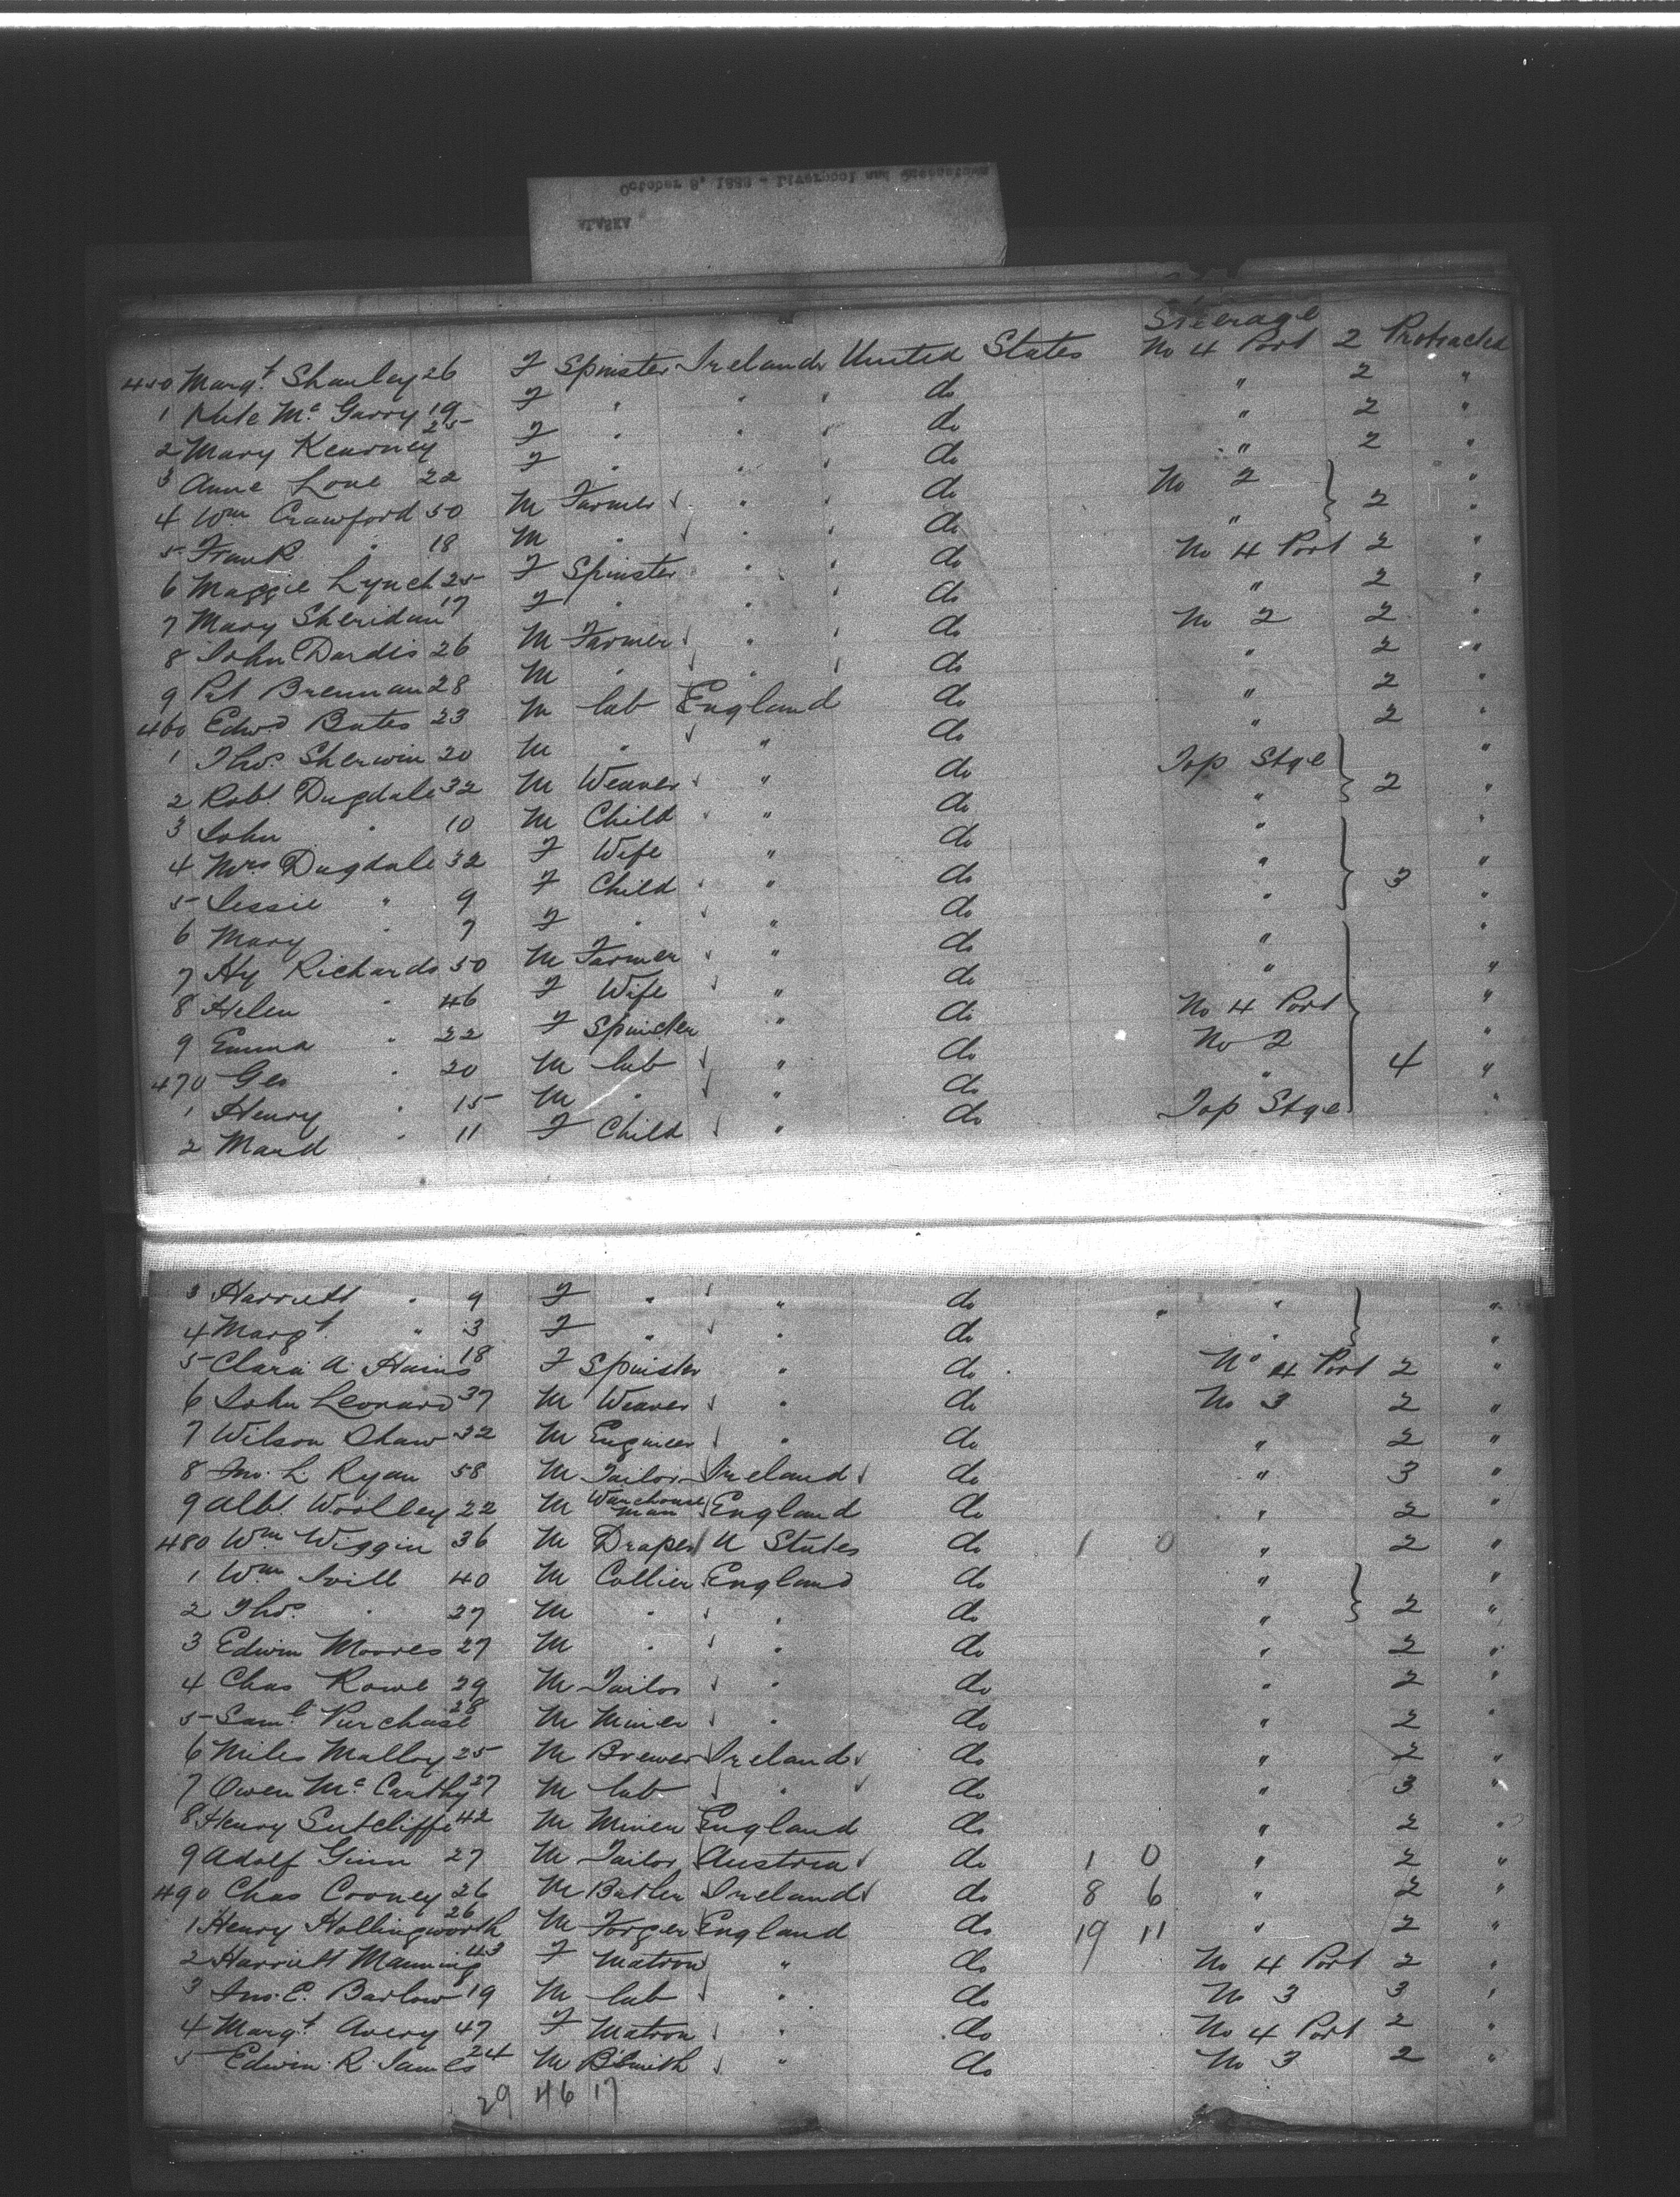 October 8, 1888 - Liverpool and Queenstown
ALASKA
Steerage
450 Margt. Shanley 26 F Spinster Ireland United States No 4 Port 2 Protracted
1 Kate Mc Garry 19 F " " do " 2 "
2 Mary Kearney 25 F " " do " 2 "
3 Anne Love 22 F " " do " 2 "
4 Wm Crawford 50 M Farmer " do No 2 "
5 Frank " 18 M " " do " 2 "
6 Maggie Lynch 25 F Spinster " do No 4 Port 2 "
7 Mary Sheridan 17 F " " do " 2 "
8 John Dardis 26 M Farmer " do No 2 2 "
9 Pat Brennan 28 M " " do " 2 "
460 Edwd Bates 23 M lab England do " 2 "
1 Thos. Sherwin 20 M " " do " 2 "
2 Robt. Dugdale 32 M Weaver " do Top Stge "
3 John " 10 M Child " do " 2 "
4 Mrs Dugdale 32 F Wife " do " "
5 Jessie " 9 F Child " do " 3 "
6 Mary " 7 F " " do " "
7 Hy Richards 50 M Farmer " do " "
8 Helen " 46 F Wife " do " "
9 Emma " 22 F Spinster " do No 4 Port "
470 Geo " 20 M lab " do No 2 "
1 Henry " 15 M " " do " 4 "
2 Maud " 11 F Child " do Top Stge "
3 Harriett " 9 F " " do " " "
4 Margt. " 3 F " " do " "
5 Clara A. Hains 18 F Spinster " do No 4 Port 2 "
6 John Leonard 37 M Weaver " do No 3 2 "
7 Wilson Shaw 32 M Engineer " do " 2 "
8 Jno. L Ryan 58 M Tailor Ireland do " 3 "
9 Albt. Woolley 22 M Warehouse man England do " 2 "
480 Wm Wiggin 36 M Draper U States do 1 0 " 2 "
1 Wm 40 M Collier England do " "
2 Thos. " 27 M " " do " 2 "
3 Edwin Moores 27 M " " do " 2 "
4 Chas Rowe 29 M Tailor " do " 2 "
5 Saml. Purchase 28 M Miner " do " 2 "
6 Miles Malloy 25 M Brewer Ireland do " 2 "
7 Owen Mc Carthy 27 M lab " do " 3 "
8 Henry Sutcliffe 42 M Miner England do " 2 "
9 Adolf Ginn 27 M Tailor Austria do 1 0 " 2 "
490 Chas Cooney 26 M Butler Ireland do 8 6 " 2 "
1 Henry Hollingworth 26 M Forger England do 19 11 " 2 "
2 Harriett Manning 43 F Matron " do No 4 Port 2 "
3 Jno. E. Barlow 19 M lab " do No 3 3 "
4 Margt. Avery 47 F Matron " do No 4 Port 2 "
5 Edwin R. James 24 M B'Smith " do No 3 2 "
29 46 17